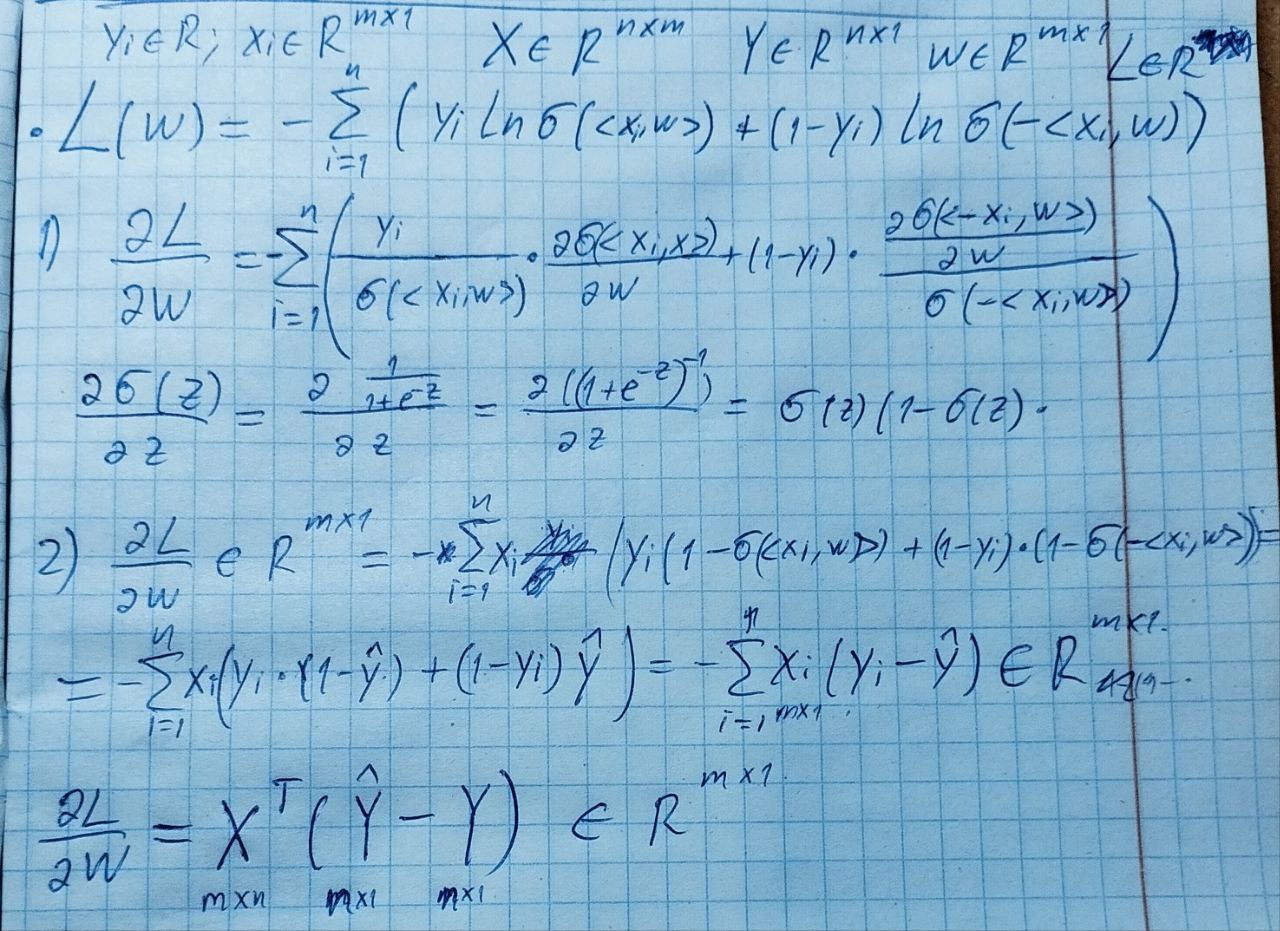 yᵢ∈R; xᵢ∈R^{m×1} X∈R^{n×m} Y∈R^{n×1} w∈R^{m×1} L∈R
• L(w) = - Σ_{i=1}^{n} (yᵢ ln σ(<xᵢ,w>) + (1-yᵢ) ln σ(-<xᵢ,w))
1) ∂L/∂w = -Σ_{i=1}^{n} ( yᵢ/σ(<xᵢ,w>) · ∂σ(<xᵢ,x>)/∂w + (1-yᵢ) · (∂σ(<-xᵢ,w>)/∂w)/σ(-<xᵢ,w>) )
∂σ(z)/∂z = ∂ (1/(1+e^{-z}))/∂z = ∂((1+e^{-z})^{-1})/∂z = σ(z)(1-σ(z).
2) ∂L/∂w ∈ R^{m×1} = -Σ_{i=1}^{n} xᵢ (yᵢ(1-σ(<xᵢ,w>) + (1-yᵢ)·(1-σ(-<xᵢ,w>)) =
= -Σ_{i=1}^{n} xᵢ(yᵢ·(1-ŷ) + (1-yᵢ) ŷ) = -Σ_{i=1}^{n} xᵢ_{m×1} (yᵢ-ŷ) ∈ R^{m×1}
∂L/∂w = X^T (Ŷ - Y) ∈ R^{m×1}
m×n n×1 n×1